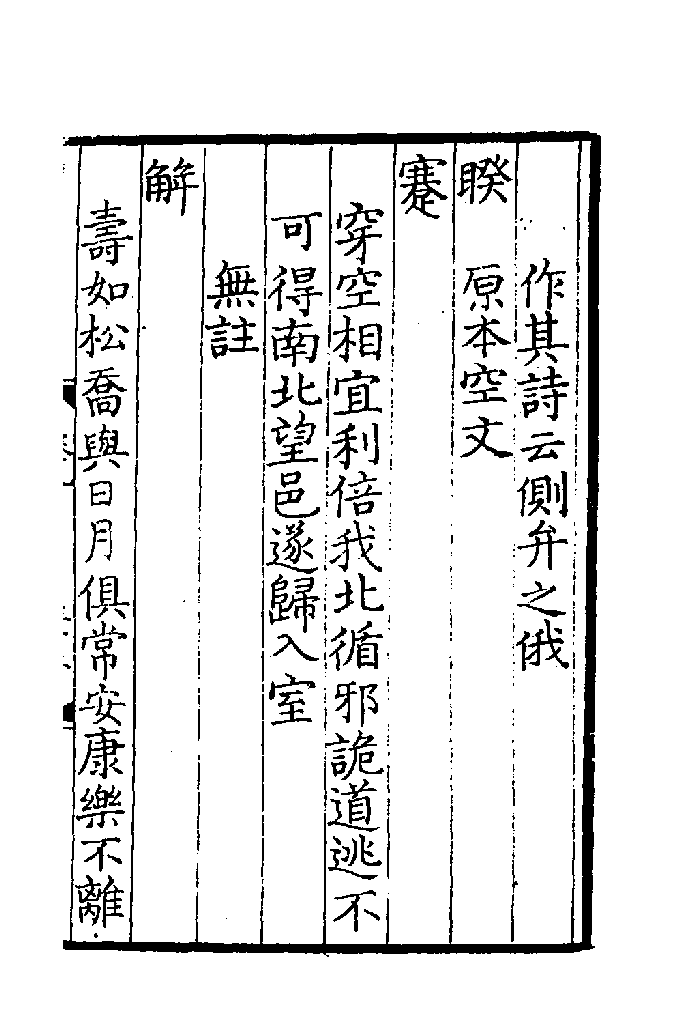 作其詩云側弁之俄
睽　原本空文
蹇
穿空相宜利倍我北循邪詭道逃不
可得南北望邑遂歸入室
無註
解
壽如松喬與日月俱常安康樂不離